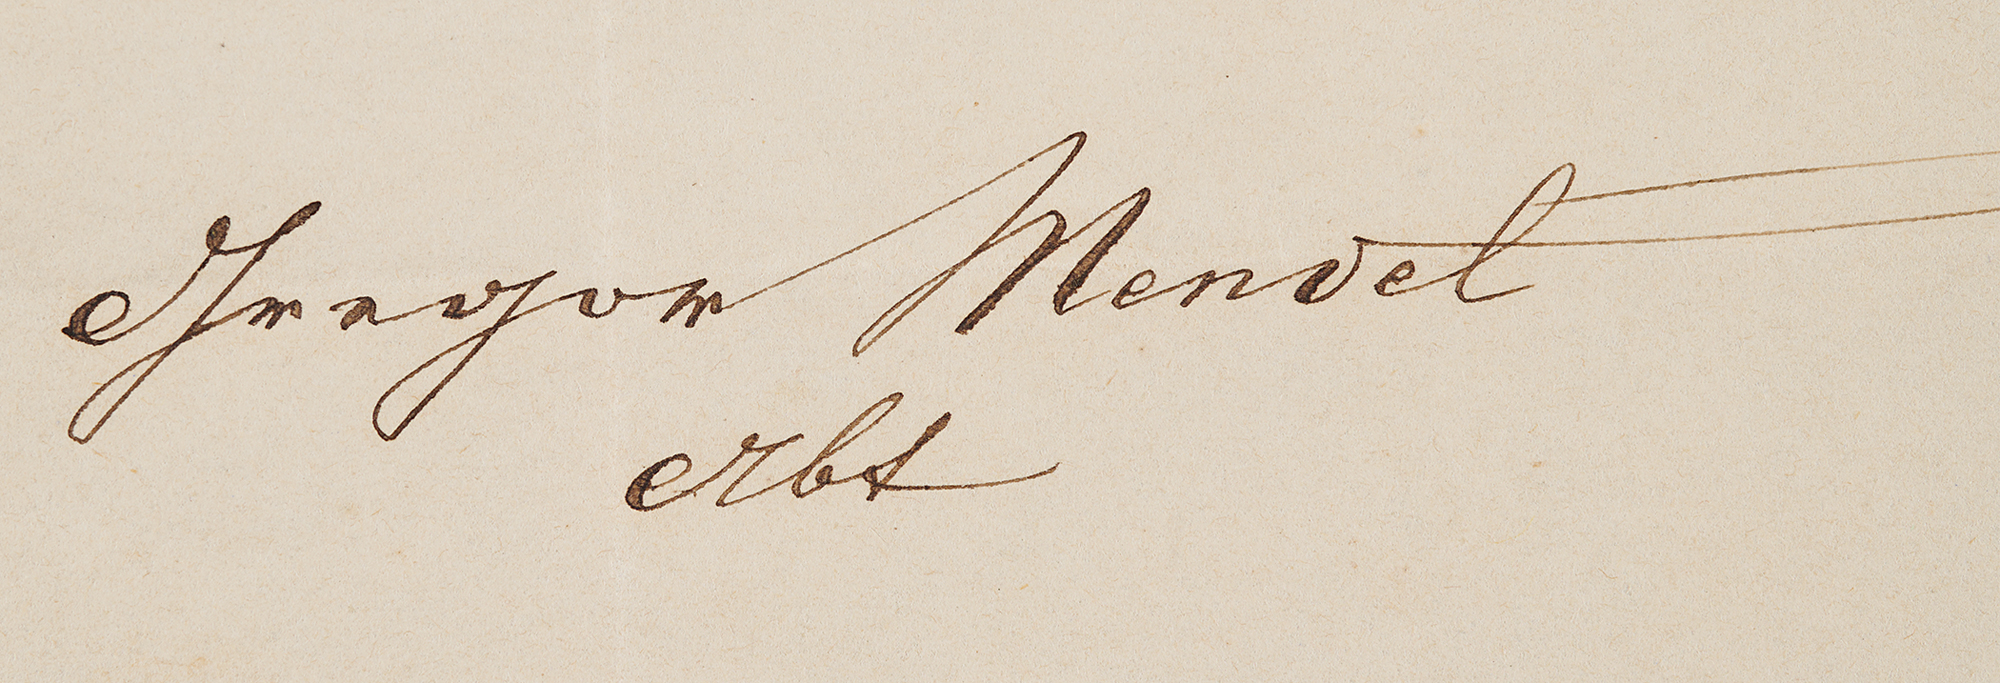 Gregor Mendel
Abt